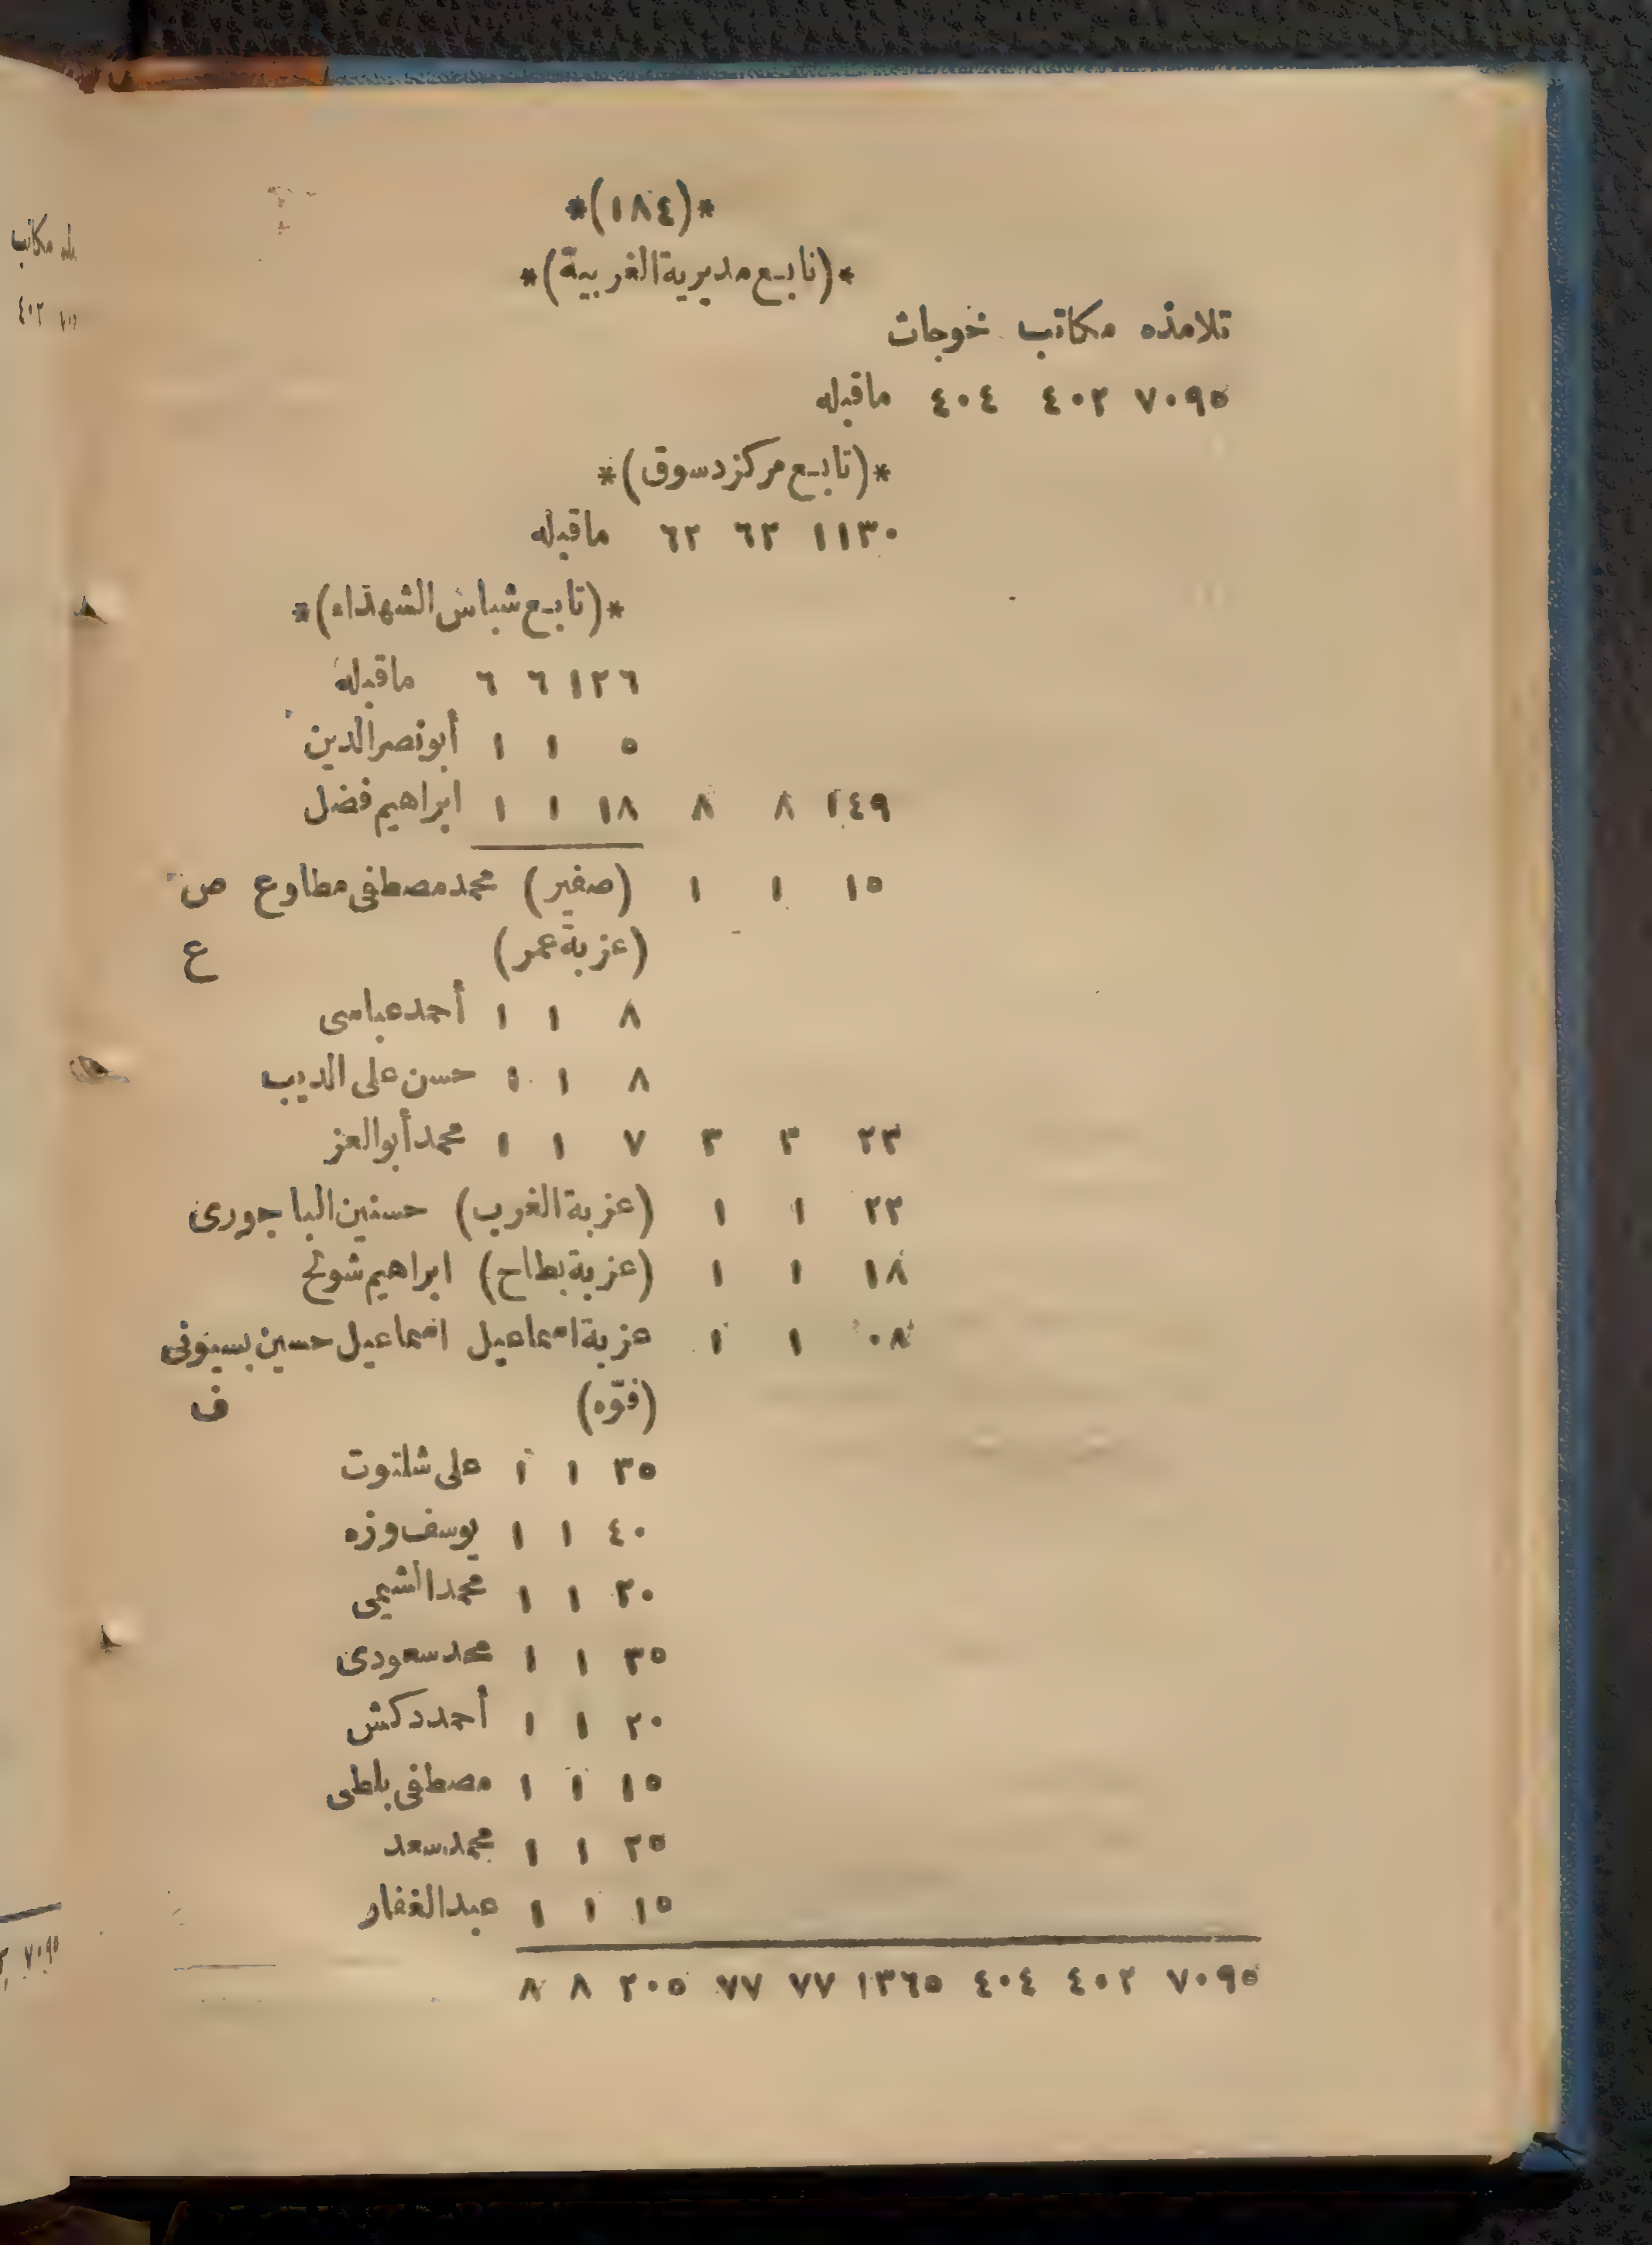 *(١٨٤)*
*(تابع مديرية الغربية)*
تلامذه مكاتب خوجات
٧٠٩٥ ٤٠٢ ٤٠٤ ماقبله
*(تابع مركز دسوق)*
١١٣٠ ٦٢ ٦٢ ماقبله
*(تابع شباس الشهداء)*
١٢٦ ٦ ٦ ماقبله
٥ ١ ١ أبو نصر الدين
١٤٩ ٨ ٨ ١٨ ١ ١ ابراهيم فضل
١٥ ١ ١ (صفير) محمد مصطفى مطاوع ص
(عزبة عمر) ع
٨ ١ ١ أحمد عباسى
٨ ١ ١ حسن على الديب
٢٣ ٣ ٣ ٧ ١ ١ محمد أبو العز
٢٢ ١ ١ (عزبة الغرب) حسنين الباجورى
١٨ ١ ١ (عزبة بطاح) ابراهيم شوئح
٠٨ ١ ١ عزبة اسماعيل اسماعيل حسين بسيونى
(فوّه) ف
٣٥ ١ ١ على شلتوت
٤٠ ١ ١ يوسف وزه
٢٠ ١ ١ محمد الشيمى
٣٥ ١ ١ محمد سعودى
٢٠ ١ ١ أحمد دكش
١٥ ١ ١ مصطفى بلطى
٢٥ ١ ١ محمد سعد
١٥ ١ ١ عبد الغفار
٧٠٩٥ ٤٠٢ ٤٠٤ ١٣٦٥ ٧٧ ٧٧ ٢٠٥ ٨ ٨
مكاتب
٤٠٢
٧٠٩٥